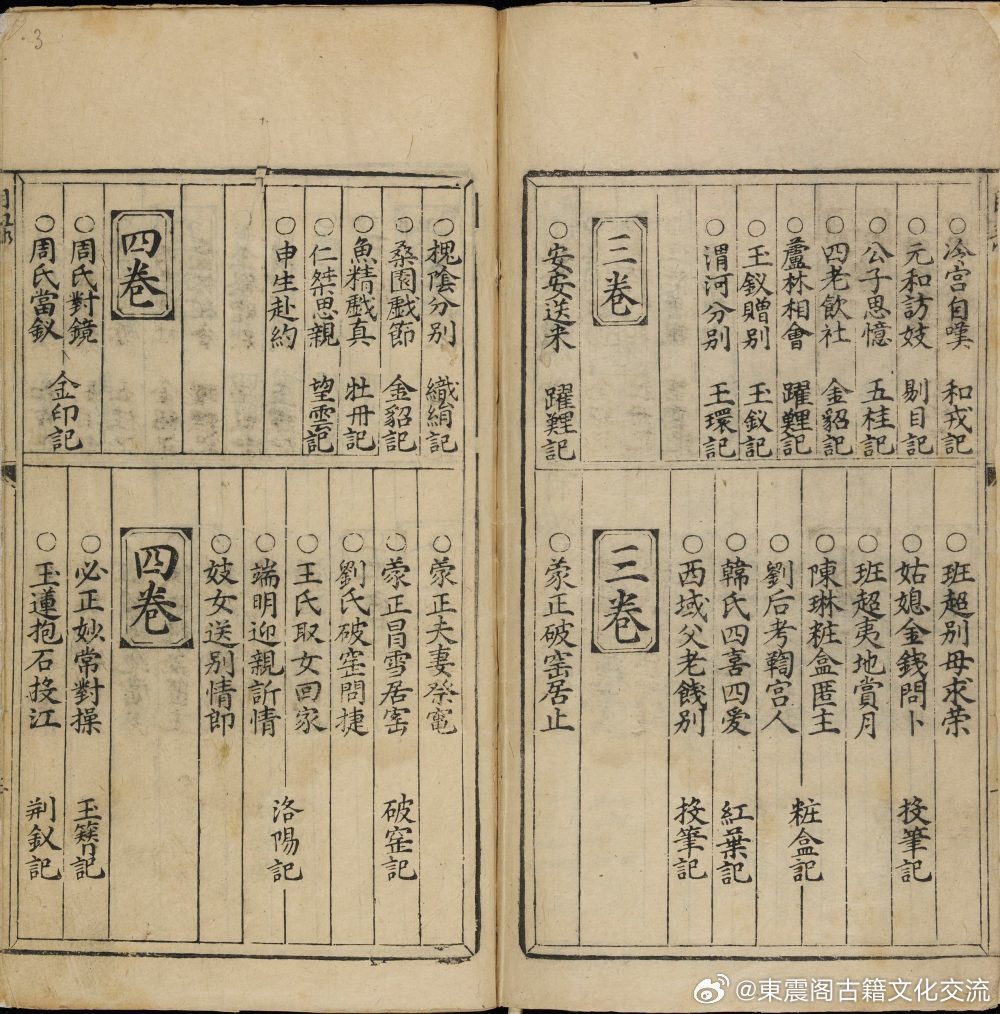 ○冷宫自嘆 和戎記
○元和訪妓 剔目記
○公子思憶 五桂記
○四老飲社 金貂記
○蘆林相會 躍鯉記
○玉釵贈別 玉釵記
○渭河分别 玉環記
三卷
○安安送米 躍鯉記
○班超别母求荣
○姑媳金錢問卜 投筆記
○班超夷地賞月
○陳琳粧盒匿主
○劉后考鞫宫人 粧盒記
○韓氏四喜四爱 紅葉記
○西域父老餞别 投筆記
三卷
○蒙正破窑居止
○槐陰分别 織絹記
○桑園戲節 金貂記
○魚精戲真 牡丹記
○仁傑思親 望雲記
○申生赴約
四卷
○周氏對鏡
○周氏當釵 金印記
○蒙正夫妻祭竈
○蒙正冒雪居窑 破窑記
○劉氏破窑問捷
○王氏取女回家
○端明迎親訴情 洛陽記
○妓女送别情郎
四卷
○必正妙常對操 玉簪記
○玉蓮抱石投江 荆釵記
目錄
3
@東震阁古籍文化交流